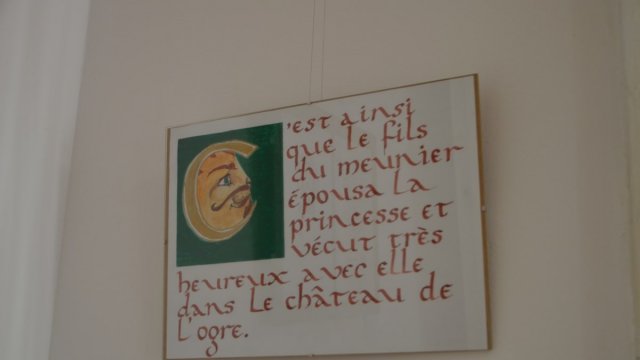 C'est ainsi
que le fils
du meunier
épousa la
princesse et
vécut très
heureux avec elle
dans le château de
l'ogre.